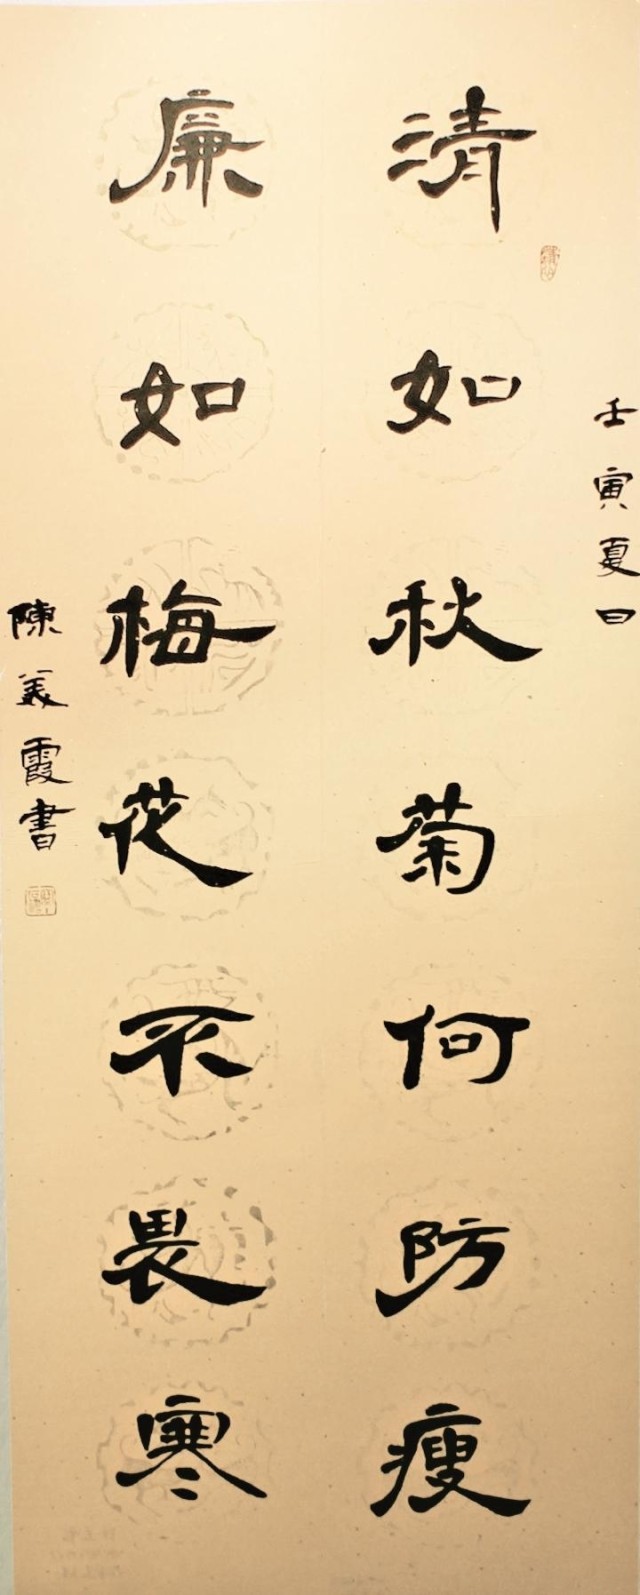 壬寅夏日
清如秋菊何防瘦
廉如梅花不畏寒
陳美霞書